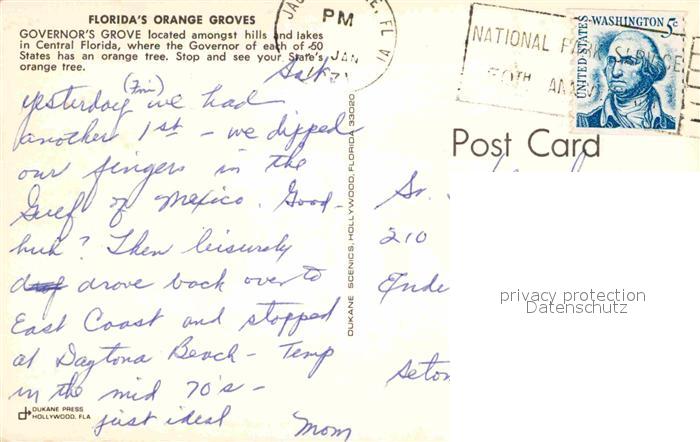 FLORIDA'S ORANGE GROVES
GOVERNOR'S GROVE located amongst hills and lakes
in Central Florida, where the Governor of each of 50
States has an orange tree. Stop and see your State's
orange tree.
PM
JAN
FL
NATIONAL PARK SERVICE
50TH
UNITED STATES
WASHINGTON 5c
Post Card
Sat.
yesterday (Fri) we had
another 1st - we dipped
our fingers in the
Gulf of Mexico. Good-
huh? Then leisurely
drove back over to
East Coast and stopped
at Daytona Beach - Temp
in the mid 70's -
just ideal
Mom
DUKANE SCENICS, HOLLYWOOD, FLORIDA 33020
DUKANE PRESS
HOLLYWOOD, FLA
Sr.
210
Ende
Seton
privacy protection
Datenschutz